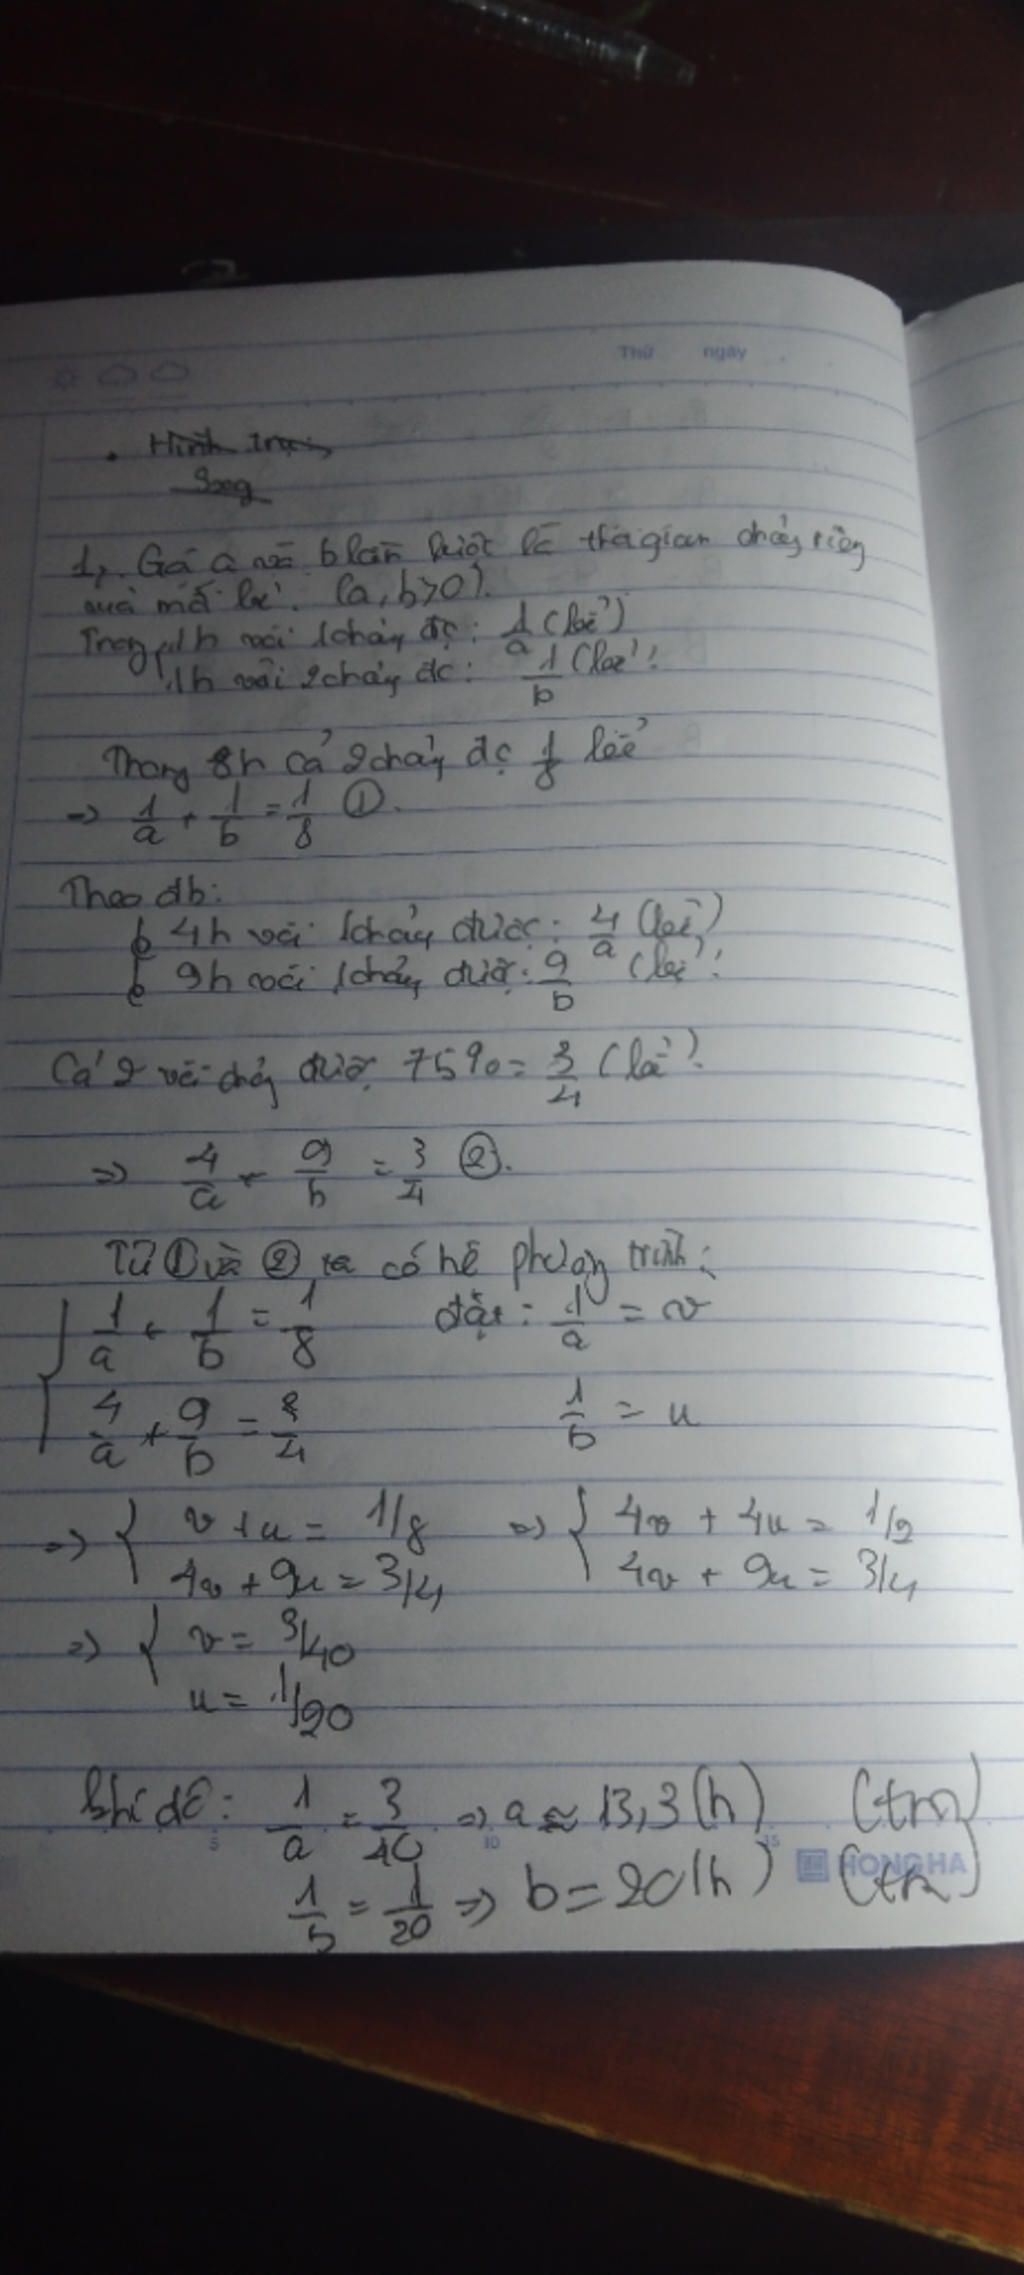 Thứ ngày
1, Gọi a và b lần lượt là thời gian chảy riêng
của mỗi (a, b>0).
Trong 1h vòi 1 chảy đc: 1/a (bể)
1h vòi 2 chảy đc: 1/b (bể)
Trong 8h cả 2 chảy đc 1/8 bể
=> 1/a + 1/b = 1/8 ①.
Theo đb:
4h vòi 1 chảy được: 4/a (bể)
9h vòi 1 chảy được: 9/b (bể)
Cả 2 vòi chảy được 75% = 3/4 (bể)
=> 4/a + 9/b = 3/4 ②.
Từ ① và ② ta có hệ phương trình:
{ 1/a + 1/b = 1/8 đặt: 1/a = v
4/a + 9/b = 3/4 1/b = u
=> { v + u = 1/8 => { 4v + 4u = 1/2
4v + 9u = 3/4 4v + 9u = 3/4
=> { v = 3/40
u = 1/20
Khi đó: 1/a = 3/40 => a ≈ 13,3 (h) (tm)
5 10 15 HONG HA
1/b = 1/20 => b = 20 (h) (tm)